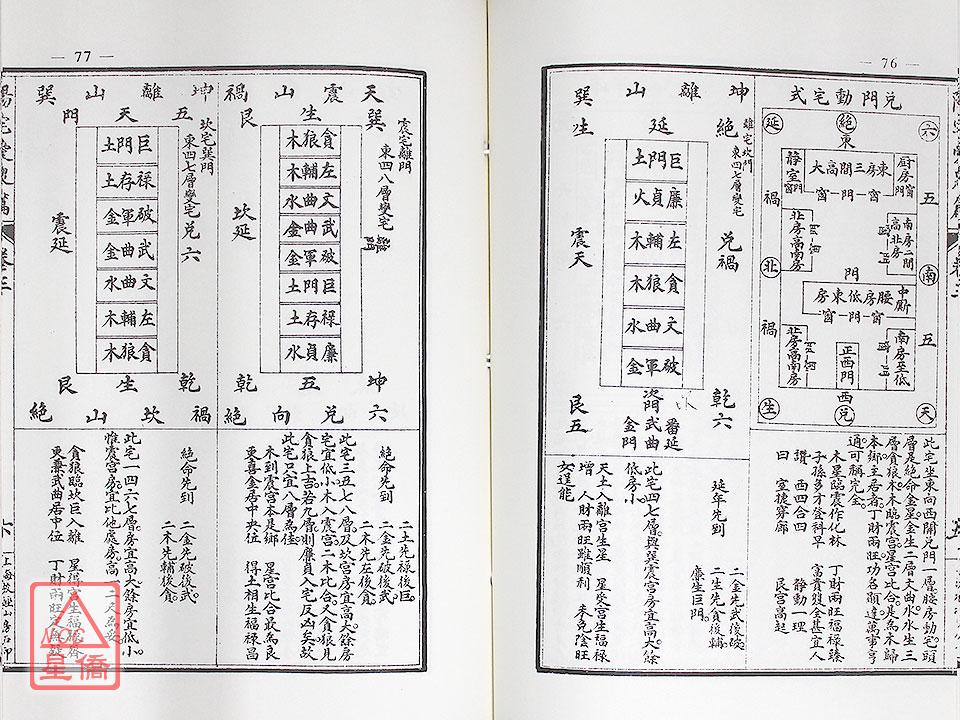 76
兌門動宅式
延
絕
六
東
靜室
門
窗
東房三間高大
窗一門一窗
廚房
門
窗
禍
五
北房高南房
南房二間高北房
北
南
門
中廚
腰房低東房
窗一門一窗
禍
五
北房高南房
正西門
南房至低
西
生
兌
天
此宅坐東向西開兌門一層腰房動宅頭
層是絕命金星金生二層文曲水水生三
層貪狼木木臨震宮星宮比合是為木歸
本鄉主居者丁財兩旺功名顯達萬事亨
通可稱完全
木星臨震作化林
丁財兩旺福祿臻
子孫多才登科早
富貴雙全甚宜人
讚
西四合四
靜動一理
曰
室捷穿廊
民宮高起
坤離山巽
絕延生
離宅坎門
東四七層變宅
巨門土
廉貞火
左輔木
貪狼木
文曲水
破軍金
兌禍
震天
乾六
艮五
坎門
番延
武曲
金門
延年先到
二金先武後破
二生先貪後輔
廉生巨門
此宅四七層與巽震宮房宜高大餘
低房小
天土入離宮生星
星受宮生福祿
增
人財兩旺雖順利
未免陰旺
女逞能
77
天震山禍
巽生艮
震宅離門
東四八層變宅
貪狼木
左輔木
文曲水
武曲金
破軍金
巨門土
祿存土
廉貞水
坎延
坤五乾
六兌向絕
絕命先到
二土先祿後巨
二金先破後武
二木先左後貪
此宅三五七八層及坎宮房宜高大餘房
宅宜低小木入震宮二木比合又貪狼見
貪狼上吉若九層則廉貞入宅反凶矣故
此宅只宜八層為佳
木到震宮本是鄉
星宮比合最為良
更喜金居中央位
得土相生福祿昌
坤離山巽
五天門
坎宅巽門
東四七層變宅
巨門土
祿存土
破軍金
武曲金
文曲水
左輔木
貪狼木
兌六
震延
乾生艮
禍坎山絕
絕命先到
二金先破後武
二木先輔後貪
此宅一四六七層房宜高大餘房宜低小
惟震宮房宜比他處房高一二尺為妥
貪狼臨坎巨入離
星得宮生福祿齊
更兼武曲居中位
丁財兩旺定無疑
星僑